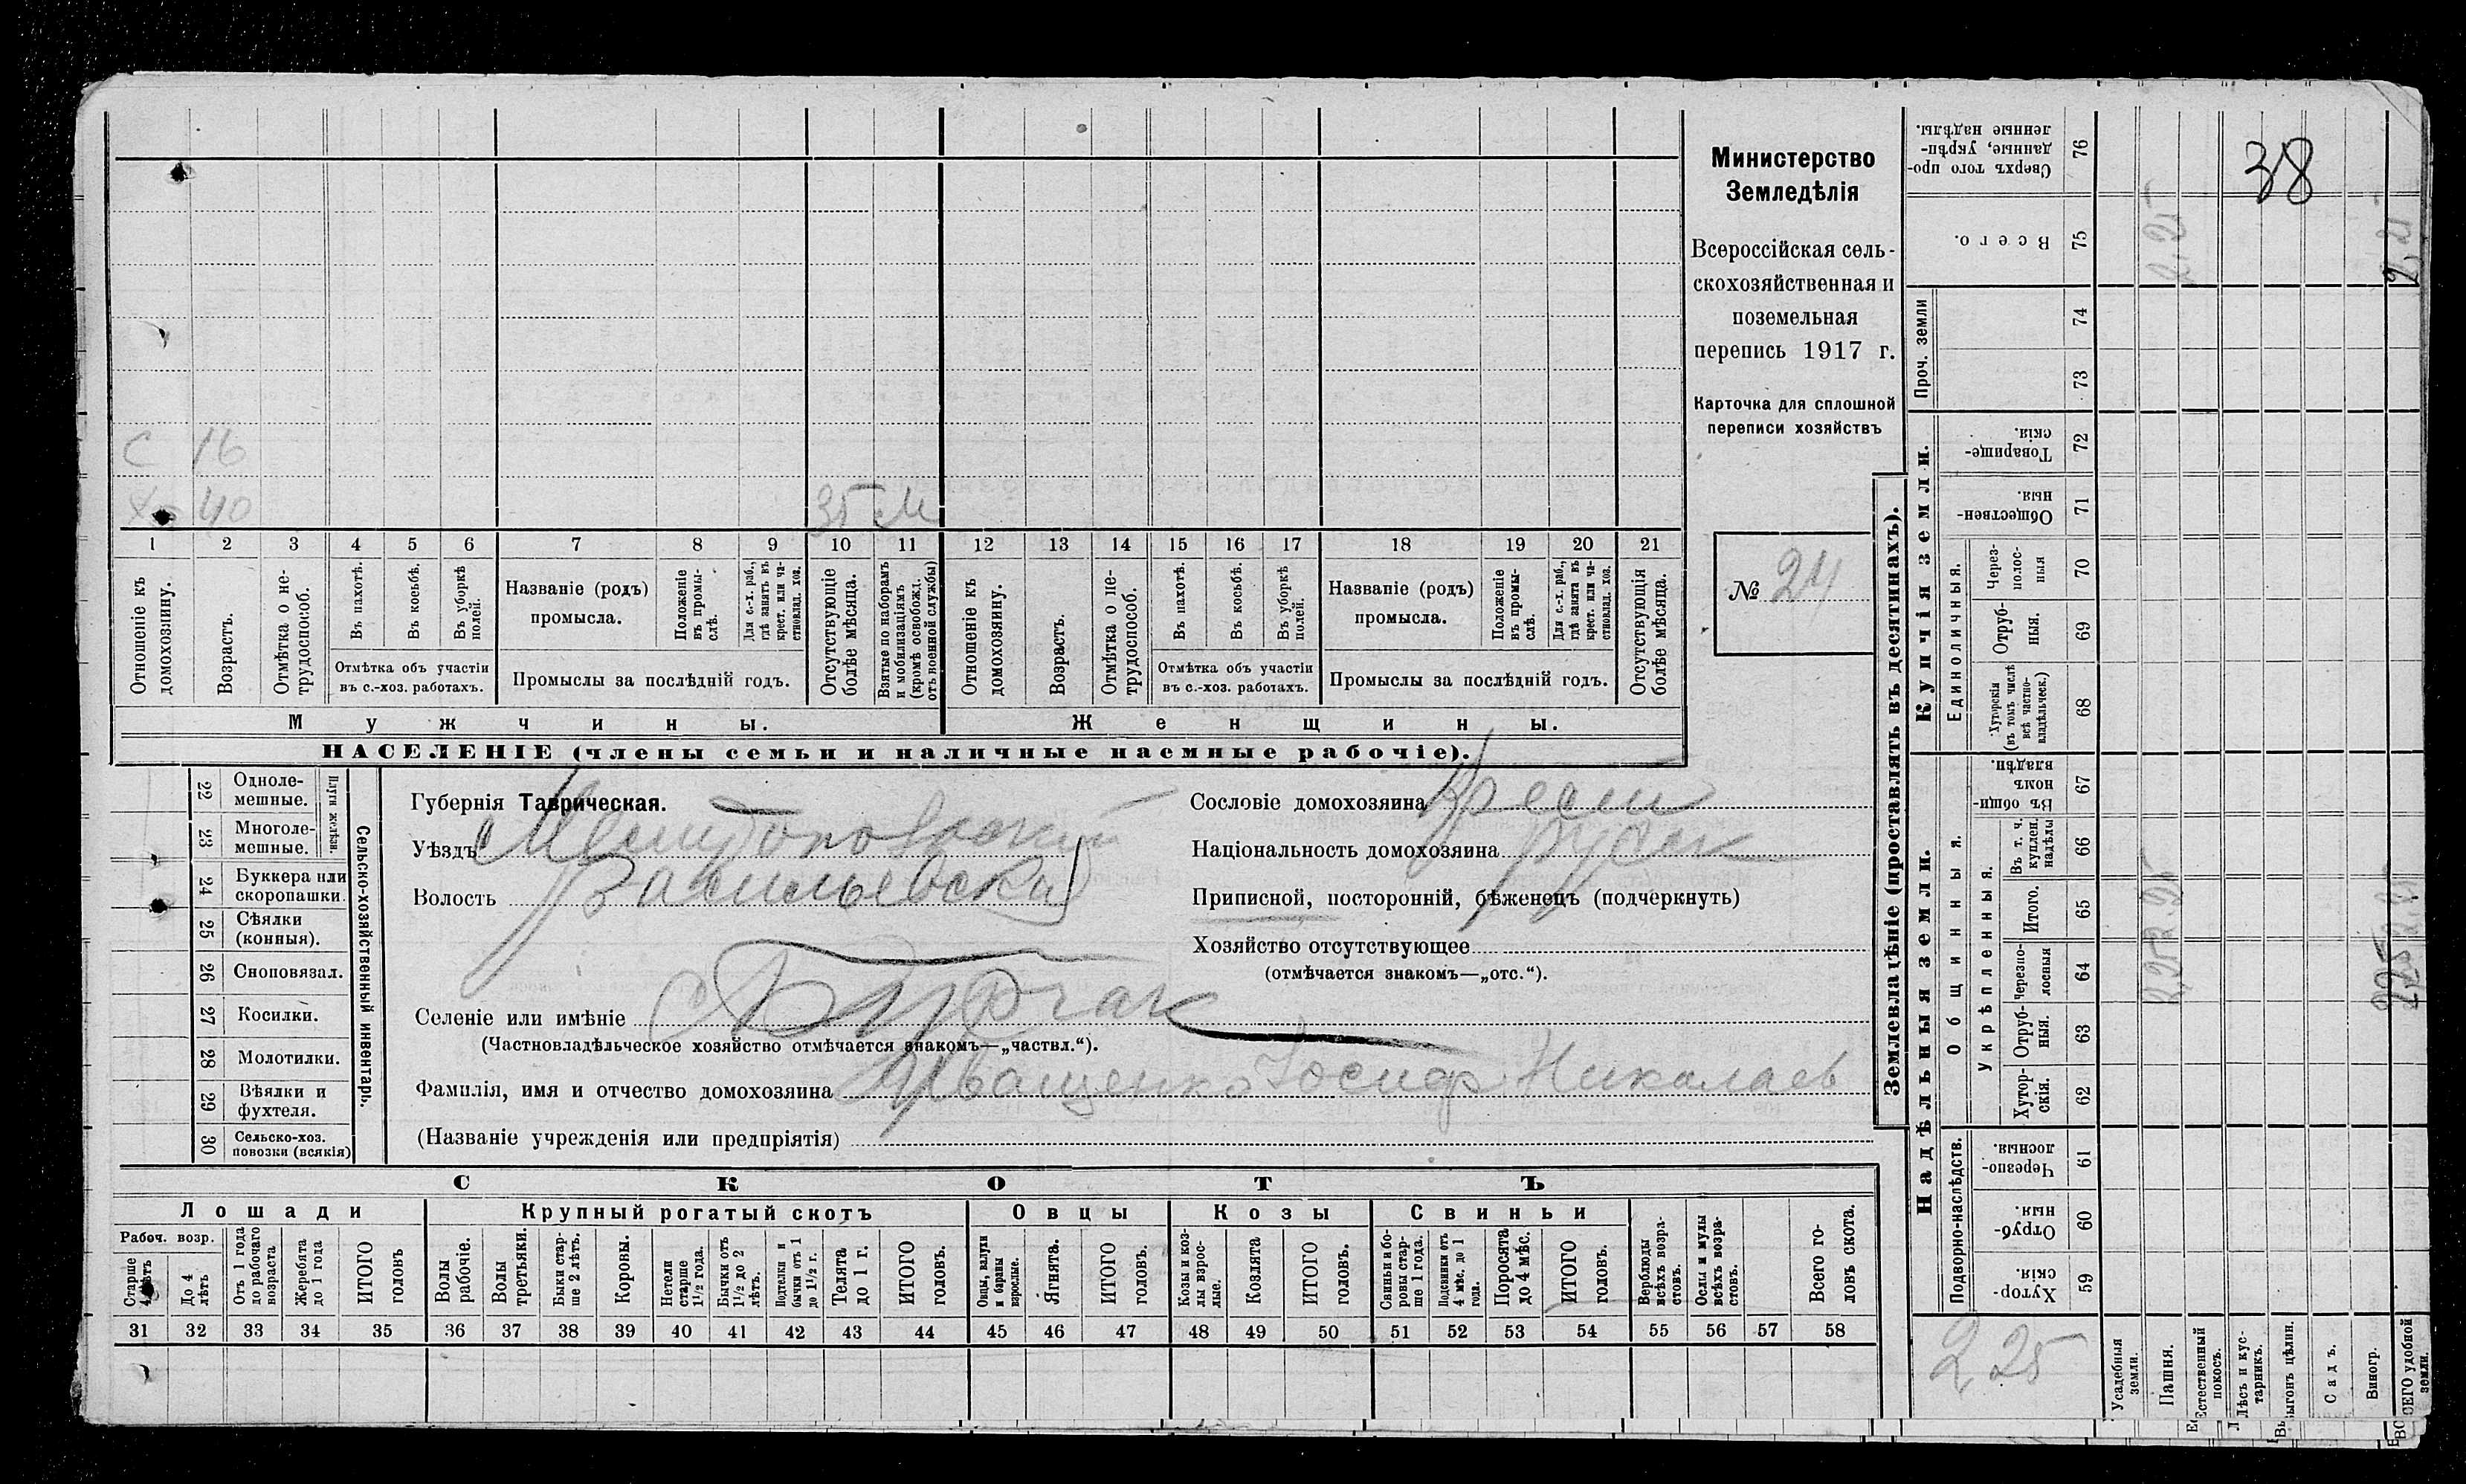 С 16
Х 40 35 М
1 2 3 4 5 6 7 8 9 10 11 12 13 14 15 16 17 18 19 20 21
Отношеніе къ домохозяину.
Возрастъ.
Отмѣтка о не-
трудоспособ.
Въ пахотѣ.
Въ косьбѣ.
Въ уборкѣ полей.
Отмѣтка объ участіи
въ с.-хоз. работахъ.
Названіе (родъ)
промысла.
Положеніе
въ промы-
слѣ.
Для с.-х. раб.,
гдѣ занятъ въ
крест. или ча-
стновлад. хоз.
Промыслы за послѣдній годъ.
Отсутствующіе
болѣе мѣсяца.
Взятые по наборамъ
и мобилизаціямъ
(кромѣ освобожд.
отъ военной службы)
Отношеніе къ
домохозяину.
Возрастъ.
Отмѣтка о не-
трудоспособ.
Въ пахотѣ.
Въ косьбѣ.
Въ уборкѣ
полей.
Отмѣтка объ участіи
въ с.-хоз. работахъ.
Названіе (родъ)
промысла.
Положеніе
въ промы-
слѣ.
Для с.-х. раб.,
гдѣ занята въ
крест. или ча-
стновлад. хоз.
Промыслы за послѣдній годъ.
Отсутствующія
болѣе мѣсяца.
Мужчины. Женщины.
НАСЕЛЕНІЕ (члены семьи и наличные наемные рабочіе).
Министерство
Земледѣлія
Всероссійская сель-
скохозяйственная и
поземельная
перепись 1917 г.
Карточка для сплошной
переписи хозяйствъ
№ 24
22 Одноле-
мешные.
23 Многоле-
мешные.
Плуги желѣзн.
24 Буккера или
скоропашки.
25 Сѣялки
(конныя).
26 Сноповязал.
27 Косилки.
28 Молотилки.
29 Вѣялки и
фухтеля.
30 Сельско-хоз.
повозки (всякія)
Сельско-хозяйственный инвентарь.
Губернія Таврическая.
Уѣздъ Мелитопольский
Волость Васильевская
Селеніе или имѣніе с Бурчак
(Частновладѣльческое хозяйство отмѣчается знакомъ—„частвл.“).
Фамилія, имя и отчество домохозяина Иващенко Иосиф Николаев
(Названіе учрежденія или предпріятія)
Сословіе домохозяина Крест
Національность домохозяина русск
Приписной, посторонній, бѣженецъ (подчеркнуть)
Хозяйство отсутствующее
(отмѣчается знакомъ—„отс.“).
СКОТЪ
Лошади Крупный рогатый скотъ Овцы Козы Свиньи
Рабоч. возр.
Старше
4 лѣтъ
До 4
лѣтъ
Отъ 1 года
до рабочаго
возраста
Жеребята
до 1 года
ИТОГО
головъ
Волы
рабочіе.
Волы
третьяки.
Быки стар-
ше 2 лѣтъ.
Коровы.
Нетели
старше
1½ года.
Бычки отъ
1½ до 2
лѣтъ.
Подтелки и
бычки отъ 1
до 1½ г.
Телята
до 1 г.
ИТОГО
головъ.
Овцы, валухи
и бараны
взрослые.
Ягнята.
ИТОГО
головъ.
Козы и коз-
лы взрос-
лые.
Козлята
ИТОГО
головъ.
Свиньи и бо-
ровы стар-
ше 1 года.
Подсвинки отъ
4 мѣс. до 1
года.
Поросята
до 4 мѣс.
ИТОГО
головъ.
Верблюды
всѣхъ возра-
стовъ.
Ослы и мулы
всѣхъ возра-
стовъ.
Всего го-
ловъ скота.
31 32 33 34 35 36 37 38 39 40 41 42 43 44 45 46 47 48 49 50 51 52 53 54 55 56 57 58
Землевладѣніе (проставлять въ десятинахъ).
Купчія земли.
Надѣльныя земли.
Сверхъ того про-
данные, укрѣп-
ленные надѣлы.
76
38
Всего.
75
2,25
2,25
Проч. земли
74
73
Товарище-
скія.
72
Обществен-
ныя.
71
Единоличныя.
Через-
полос-
ныя
70
Отруб-
ныя.
69
Хуторскія
(въ томъ числѣ
всѣ частно-
владѣльческ.)
68
Въ общи-
номъ
владѣн.
67
Общинныя.
Укрѣпленныя.
Въ т. ч.
куплен.
надѣлы
66
Итого.
65
2,25
2,25
Черезпо-
лосныя
64
2,25
2,25
Отруб-
ныя.
63
Хутор-
скія.
62
Подворно-наслѣдств.
Черезпо-
лосныя
61
Отруб-
ныя.
60
Хутор-
скія.
59
2,25
Усадебныя
земли.
Пашня.
Естественный
покосъ.
Лѣсъ и кус-
тарникъ.
Выгонъ цѣлин.
Садъ.
Виногр.
ВСЕГО удобной
земли.